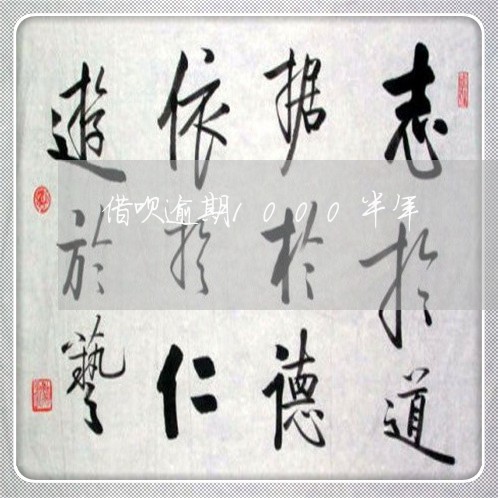 志於道
据於德
依於仁
遊於藝
借吹逾期1000半年